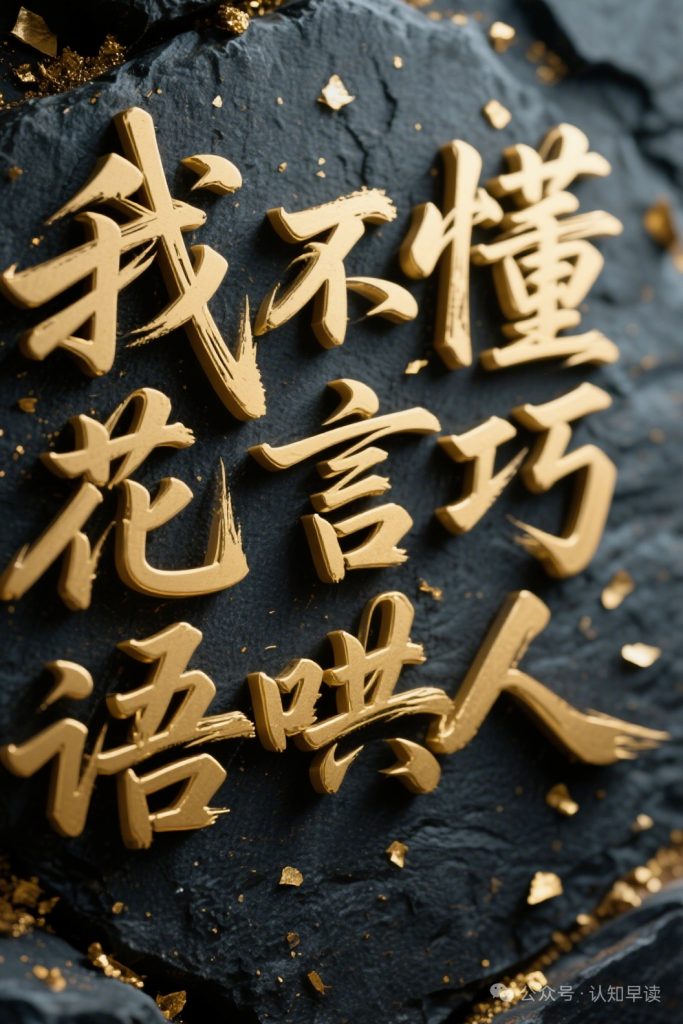 我不懂
花言巧
语哄人
公众号·认知早读